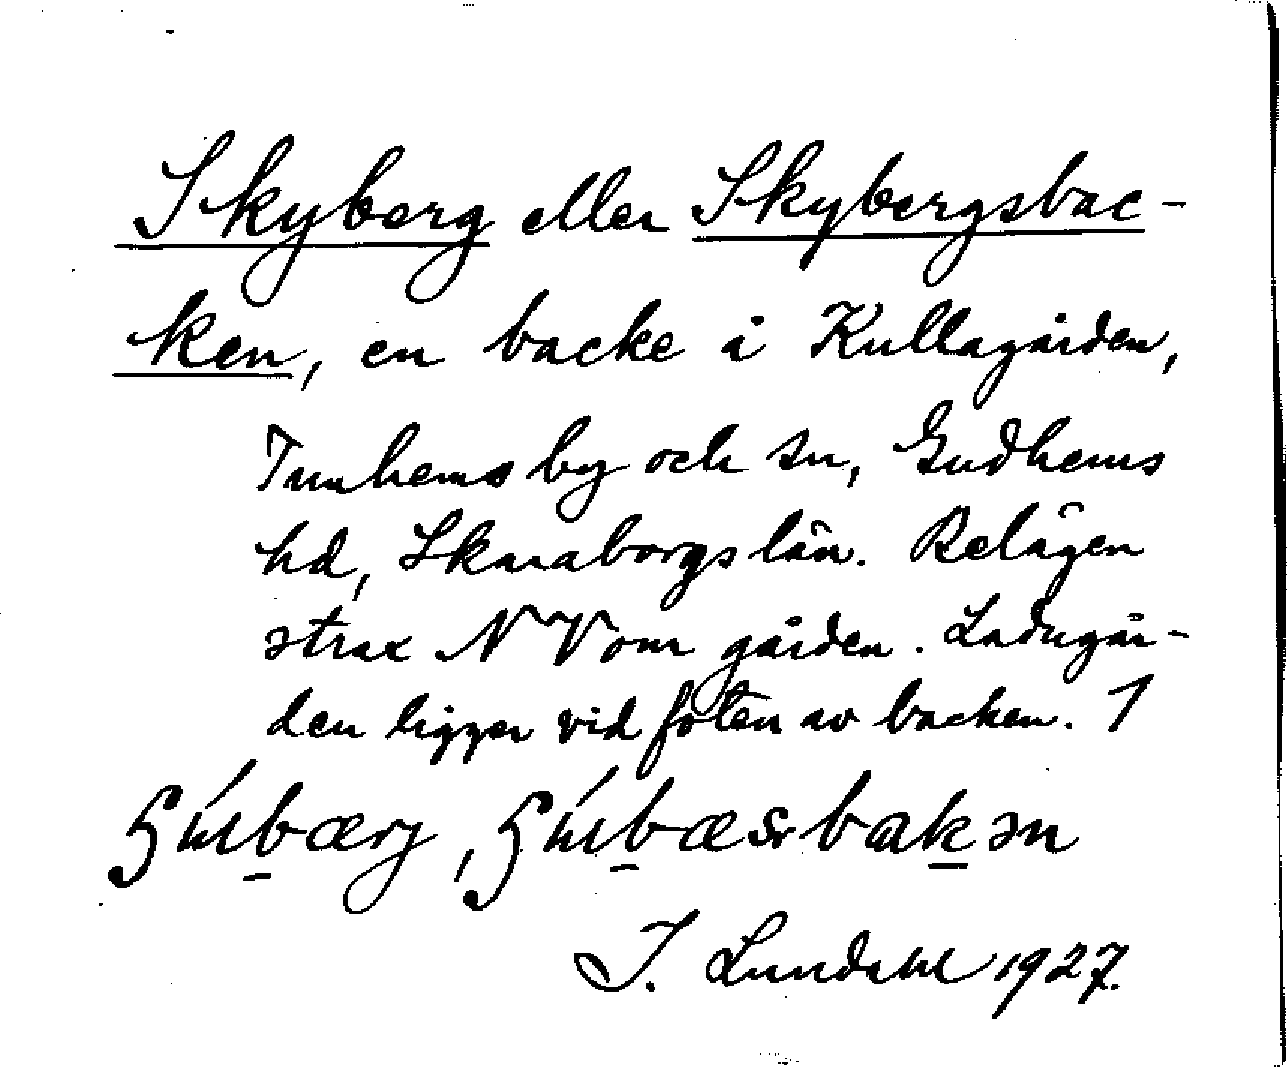 Skyberg eller Skybergsbac-
ken, en backe å Kullagården,
Tunhems by och sn, Gudhems
hd, Skaraborgs län. Belägen
strax NV om gården. Ladugår-
den ligger vid foten av backen. 1
J. Lundahl 1927.